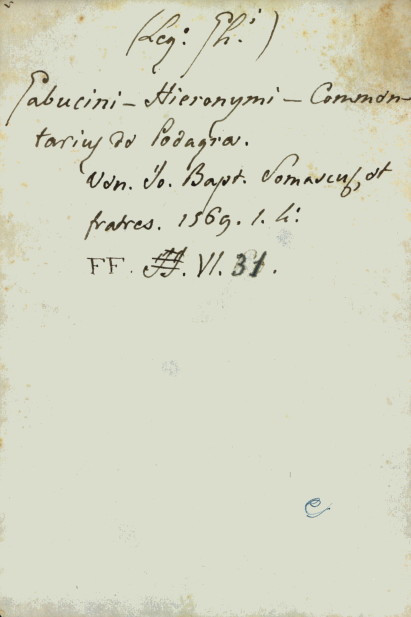 (Leg: Ph.i)
Gabucini – Hieronymi – Commen-
tarius de Podagra.
Ven. Jo. Bapt. Somascus, et
fratres. 1569. 1. 4:
FF. VI. 31.
e